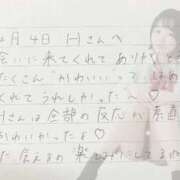 4月4日 Hさんへ
会いに来てくれてありがとう
たくさん"かわいい"って
くれてうれしかった〜♡
Hさんは全部の反応が素直
かわいかったよ♡
また会えるの楽しみにしてるね